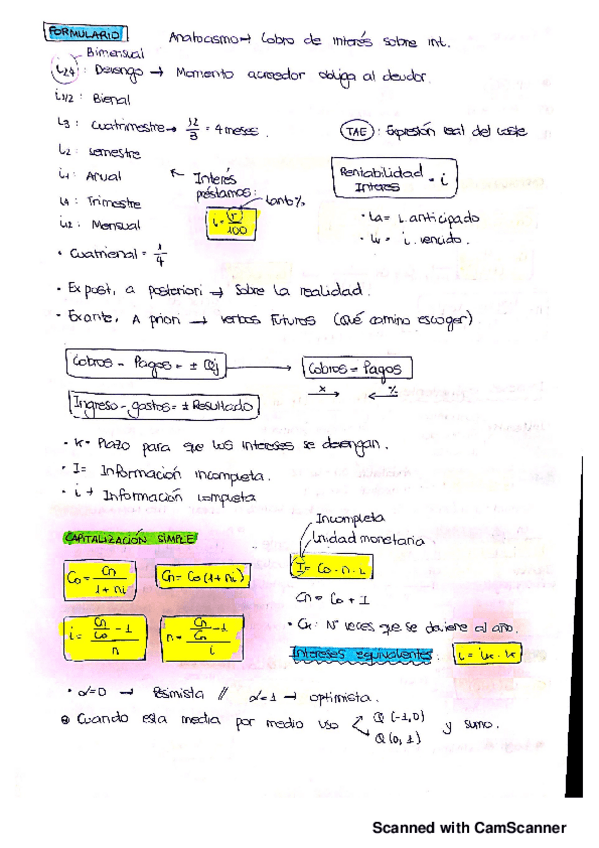 FORMULARIO
Anatocismo → Cobro de interés sobre int.
Bimensual
i24 : Devengo → Momento acreedor obliga al deudor.
i1/2 : Bienal
i3 : Cuatrimestre → 12/3 = 4 meses.
TAE : Expresión real del coste
i2 : Semestre
i1 : Anual
Interés
préstamos :
tanto %
i = r/100
Rentabilidad
Interes
= i
i4 : Trimestre
i12 : Mensual
• ia = i. anticipado
• iv = i. vencido.
• Cuatrienal = 1/4
• Expost, a posteriori → Sobre la realidad.
• Exante, A priori → verbos futuros (Qué camino escoger)
Cobros - Pagos = ±
Cobros = Pagos
x → ← %
Ingreso - gastos = ± Resultado
• k = Plazo para que los intereses se devengan.
• I = Información incompleta.
• i → Información completa
Incompleta
Unidad monetaria.
CAPITALIZACIÓN SIMPLE
Co = Cn / 1 + ni
Cn = Co (1 + ni)
I = Co · n · i
Cn = Co + I
i = Cn/Co - 1 / n
n = Cn/Cn - 1 / i
• Ck : Nº veces que se deviene al año.
Intereses equivalentes : i = ik · k
• α = 0 → Pesimista // α = 1 → optimista.
Cuando esta media por medio uso Q (-1,0) y sumo.
Q (0, 1)
Scanned with CamScanner